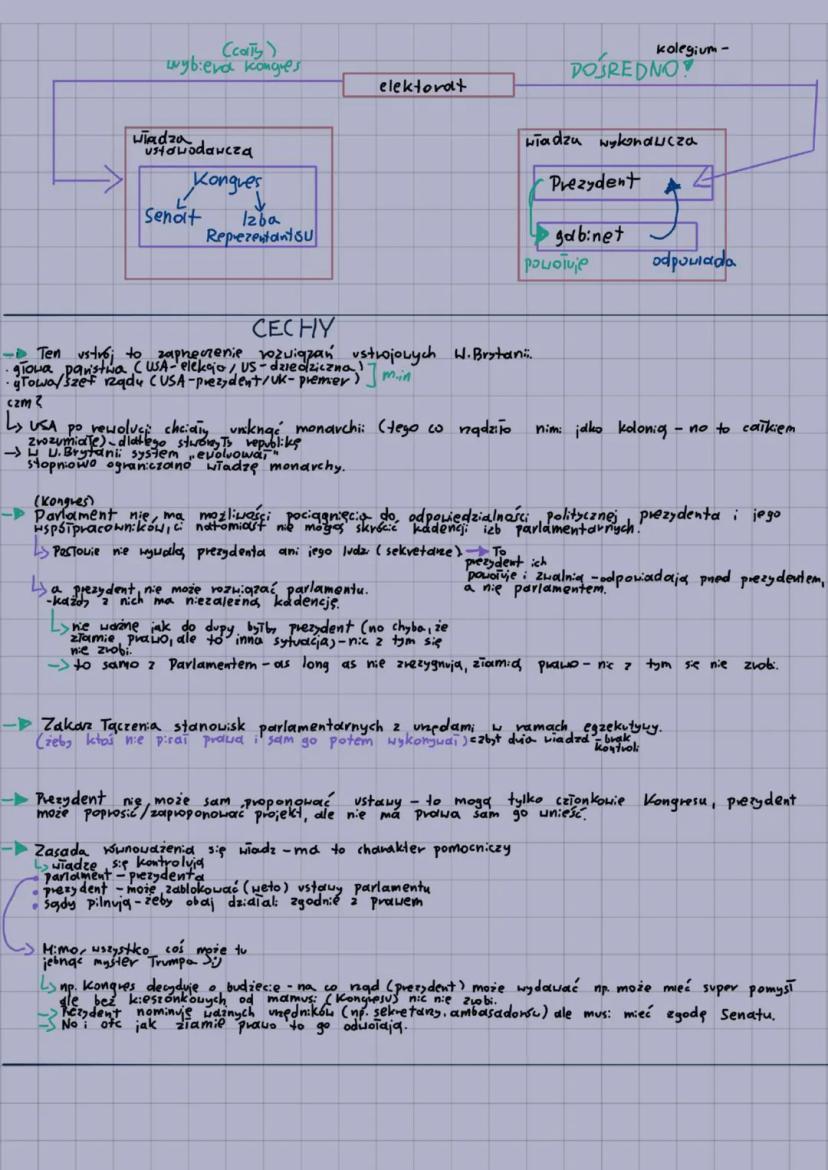 (cały)
wybiera kongres
kolegium -
POŚREDNIO!
elektorat
władza
ustawodawcza
Kongres
Senat
Izba
Reprezentantów
władza wykonawcza
Prezydent
gabinet
powołuje
odpowiada
CECHY
Ten ustrój to zaprzeczenie rozwiązań ustrojowych W.Brytanii.
· głowa państwa (USA-elekcja / US - dziedziczna)
· głowa/szef rządu (USA-prezydent/UK-premier)
m.in
czm?
USA po rewolucji chciały uniknąć monarchii (tego co rządziło nimi jako kolonią - no to całkiem
zrozumiałe) - dlatego stworzyły republikę
→ W W.Brytanii system „ewoluował"
stopniowo ograniczano władzę monarchy.
(Kongres)
Parlament nie ma możliwości pociągnięcia do odpowiedzialności politycznej prezydenta i jego
współpracowników, ci natomiast nie mogą skrócić kadencji izb parlamentarnych.
Posłowie nie wywalą prezydenta ani jego ludzi (sekretarze) → To
prezydent ich
powołuje i zwalnia - odpowiadają przed prezydentem,
a nie parlamentem.
a prezydent nie może rozwiązać parlamentu.
-każdy z nich ma niezależną kadencję.
nie ważne jak do dupy byłby prezydent (no chyba, że
złamie prawo, ale to inna sytuacja) - nic z tym się
nie zrobi.
→ to samo z Parlamentem - as long as nie zrezygnują, złamią prawo - nic z tym się nie zrobi.
Zakaz łączenia stanowisk parlamentarnych z urzędami w ramach egzekutywy.
(żeby ktoś nie pisał prawa i sam go potem wykonywał) = zbyt duża władza - brak
kontroli
Prezydent nie może sam proponować ustawy - to mogą tylko członkowie Kongresu, prezydent
może poprosić/zaproponować projekt, ale nie ma prawa sam go wnieść.
Zasada równoważenia się władz - ma to charakter pomocniczy
władze się kontrolują
• parlament - prezydenta
• prezydent - może zablokować (weto) ustawy parlamentu
• sądy pilnują - żeby obaj działali zgodnie z prawem
Mimo, wszystko coś może tu
jebnąć myster Trumpa :)
np. Kongres decyduje o budżecie - na co rząd (prezydent) może wydawać np. może mieć super pomysł
ale bez kieszonkowych od mamusi (Kongresu) nic nie zrobi.
→ Prezydent nominuje ważnych urzędników (np. sekretarzy, ambasadorów) ale musi mieć zgodę Senatu.
→ No i otc jak złamie prawo to go odwołają.